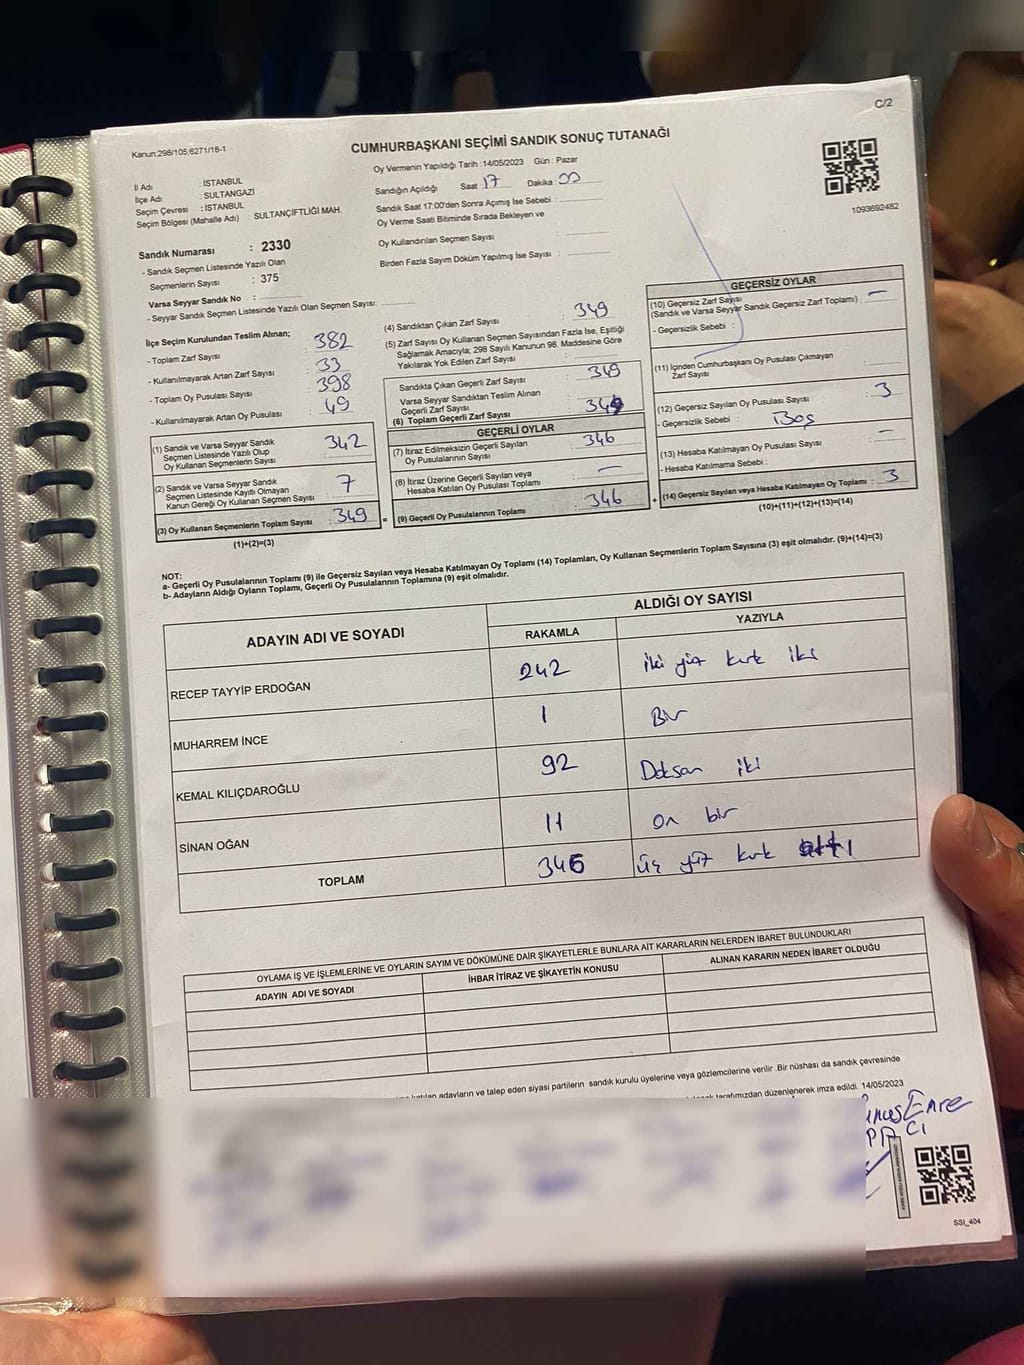 C/2
Kanun:298/105,6271/18-1
CUMHURBAŞKANI SEÇİMİ SANDIK SONUÇ TUTANAĞI
İl Adı : İSTANBUL
İlçe Adı : SULTANGAZİ
Seçim Çevresi : İSTANBUL
Seçim Bölgesi (Mahalle Adı) : SULTANÇİFTLİĞİ MAH.
Sandık Numarası : 2330
- Sandık Seçmen Listesinde Yazılı Olan
Seçmenlerin Sayısı : 375
Varsa Seyyar Sandık No :
- Seyyar Sandık Seçmen Listesinde Yazılı Olan Seçmen Sayısı:
Oy Vermenin Yapıldığı Tarih : 14/05/2023 Gün : Pazar
Sandığın Açıldığı Saat 17 Dakika 00
Sandık Saat 17:00'den Sonra Açmış İse Sebebi :
Oy Verme Saati Bitiminde Sırada Bekleyen ve
Oy Kullandırılan Seçmen Sayısı :
Birden Fazla Sayım Döküm Yapılmış İse Sayısı :
1093692482
İlçe Seçim Kurulundan Teslim Alınan;
- Toplam Zarf Sayısı : 382
- Kullanılmayarak Artan Zarf Sayısı : 33
- Toplam Oy Pusulası Sayısı : 398
- Kullanılmayarak Artan Oy Pusulası : 49
(1) Sandık ve Varsa Seyyar Sandık
Seçmen Listesinde Yazılı Olup
Oy Kullanan Seçmenlerin Sayısı : 342
(2) Sandık ve Varsa Seyyar Sandık
Seçmen Listesinde Kayıtlı Olmayan
Kanun Gereği Oy Kullanan Seçmen Sayısı : 7
(3) Oy Kullanan Seçmenlerin Toplam Sayısı : 349
(1)+(2)=(3)
=
(4) Sandıktan Çıkan Zarf Sayısı : 349
(5) Zarf Sayısı Oy Kullanan Seçmen Sayısından Fazla İse, Eşitliği
Sağlamak Amacıyla; 298 Sayılı Kanunun 98. Maddesine Göre
Yakılarak Yok Edilen Zarf Sayısı :
Sandıkta Çıkan Geçerli Zarf Sayısı : 349
Varsa Seyyar Sandıktan Teslim Alınan
Geçerli Zarf Sayısı :
(6) Toplam Geçerli Zarf Sayısı : 349
GEÇERLİ OYLAR
(7) İtiraz Edilmeksizin Geçerli Sayılan
Oy Pusulalarının Sayısı : 346
(8) İtiraz Üzerine Geçerli Sayılan veya
Hesaba Katılan Oy Pusulası Toplamı : —
(9) Geçerli Oy Pusulalarının Toplamı : 346
+
GEÇERSİZ OYLAR
(10) Geçersiz Zarf Sayısı
(Sandık ve Varsa Seyyar Sandık Geçersiz Zarf Toplamı) : —
- Geçersizlik Sebebi :
(11) İçinden Cumhurbaşkanı Oy Pusulası Çıkmayan
Zarf Sayısı :
(12) Geçersiz Sayılan Oy Pusulası Sayısı : 3
- Geçersizlik Sebebi : Boş
(13) Hesaba Katılmayan Oy Pusulası Sayısı : —
- Hesaba Katılmama Sebebi :
(14) Geçersiz Sayılan veya Hesaba Katılmayan Oy Toplamı : 3
(10)+(11)+(12)+(13)=(14)
NOT:
a- Geçerli Oy Pusulalarının Toplamı (9) ile Geçersiz Sayılan veya Hesaba Katılmayan Oy Toplamı (14) Toplamları, Oy Kullanan Seçmenlerin Toplam Sayısına (3) eşit olmalıdır. (9)+(14)=(3)
b- Adayların Aldığı Oyların Toplamı, Geçerli Oy Pusulalarının Toplamına (9) eşit olmalıdır.
ADAYIN ADI VE SOYADI
ALDIĞI OY SAYISI
RAKAMLA YAZIYLA
RECEP TAYYİP ERDOĞAN 242 iki yüz kırk iki
MUHARREM İNCE 1 Bir
KEMAL KILIÇDAROĞLU 92 Doksan iki
SİNAN OĞAN 11 on bir
TOPLAM 346 üç yüz kırk altı
OYLAMA İŞ VE İŞLEMLERİNE VE OYLARIN SAYIM VE DÖKÜMÜNE DAİR ŞİKAYETLERLE BUNLARA AİT KARARLARIN NELERDEN İBARET BULUNDUKLARI
ADAYIN ADI VE SOYADI İHBAR İTİRAZ VE ŞİKAYETİN KONUSU ALINAN KARARIN NEDEN İBARET OLDUĞU
katılan adayların ve talep eden siyasi partilerin sandık kurulu üyelerine veya gözlemcilerine verilir .Bir nüshası da sandık çevresinde
tarafımızdan düzenlenerek imza edildi. 14/05/2023
Emre
SSI_404